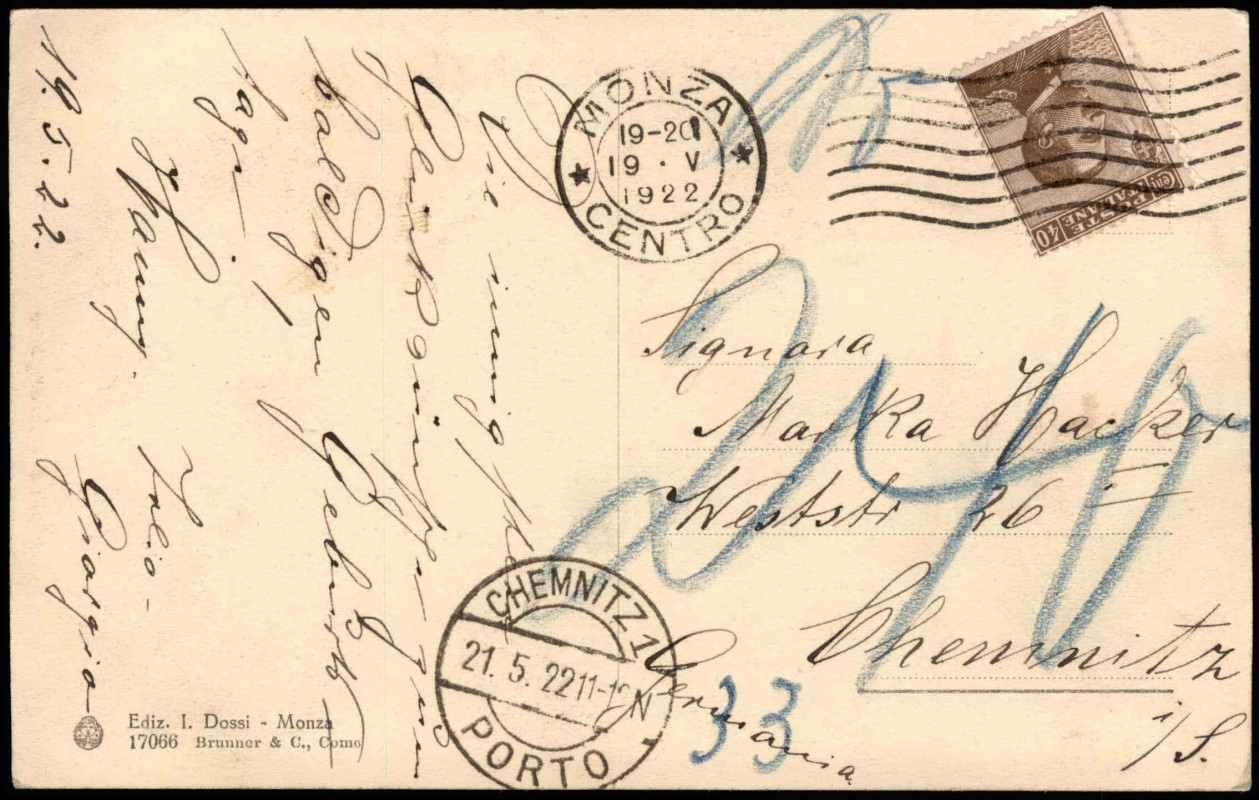 19. 5. 22.
Die innigsten
Glückwünsche zum
baldigen Geburts-
tage!
Hans.
Julio-
Giorgio
Ediz. I. Dossi - Monza
17066 Brunner & C., Como
MONZA
19-20
19 · V
1922
CENTRO
40 Cent
POSTE
ITALIANE
Signora
Marka Hacker
Weststr 26 II
Chemnitz
i/S.
Germania.
CHEMNITZ 1
21. 5. 22 11-12 N
PORTO
33